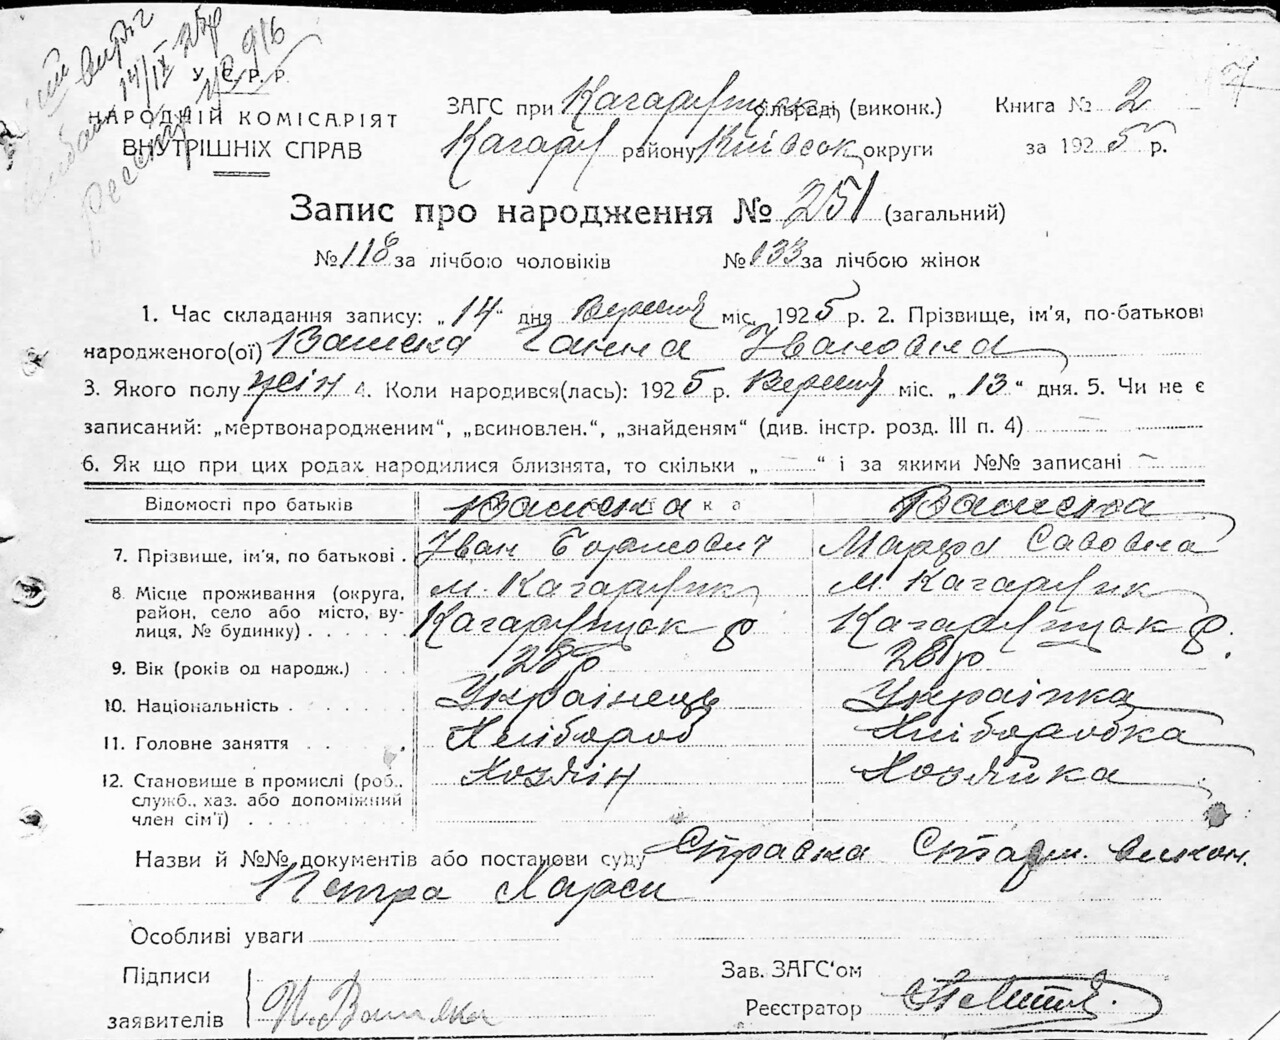 14/IX 25р
№ 916
У. С. Р. Р.
НАРОДНІЙ КОМІСАРІЯТ
ВНУТРІШНІХ СПРАВ
ЗАГС при Кагарлицьк сільраді, (виконк.)
Кагарл району Київськ округи
Книга № 2
за 1925 р.
Запис про народження № 251 (загальний)
№ 118 за лічбою чоловіків № 133 за лічбою жінок
1. Час складання запису: „14" дня Вересня міс. 1925 р. 2. Прізвище, ім'я, по-батькові
народженого(ої) Ганна Івановна
3. Якого полу жін 4. Коли народився(лась): 1925 р. Вересня міс. „13" дня. 5. Чи не є
записаний: „мертвонародженим", „всиновлен.", „знайденям" (див. інстр. розд. III п. 4)
6. Як що при цих родах народилися близнята, то скільки „ — " і за якими №№ записані —
Відомості про батьків
7. Прізвище, ім'я, по батькові . Іван Савовна
8. Місце проживання (округа, м. Кагарлик м. Кагарлик
район, село або місто, ву-
лиця, № будинку) . . . . . Кагарлицьк р Кагарлицьк р.
9. Вік (років од народж.) . . . 28 р 28 р.
10. Національність . . . . . . Українець Українка
11. Головне заняття . . . . . Хлібороб Хліборобка
12. Становище в промислі (роб., Хозяін Хозяйка
служб., хаз. або допоміжний
член сім'ї) . . . . . . . .
Назви й №№ документів або постанови суду Справка викон.
Петра
Особливі уваги
Підписи
заявителів
Зав. ЗАГС'ом
Реєстратор